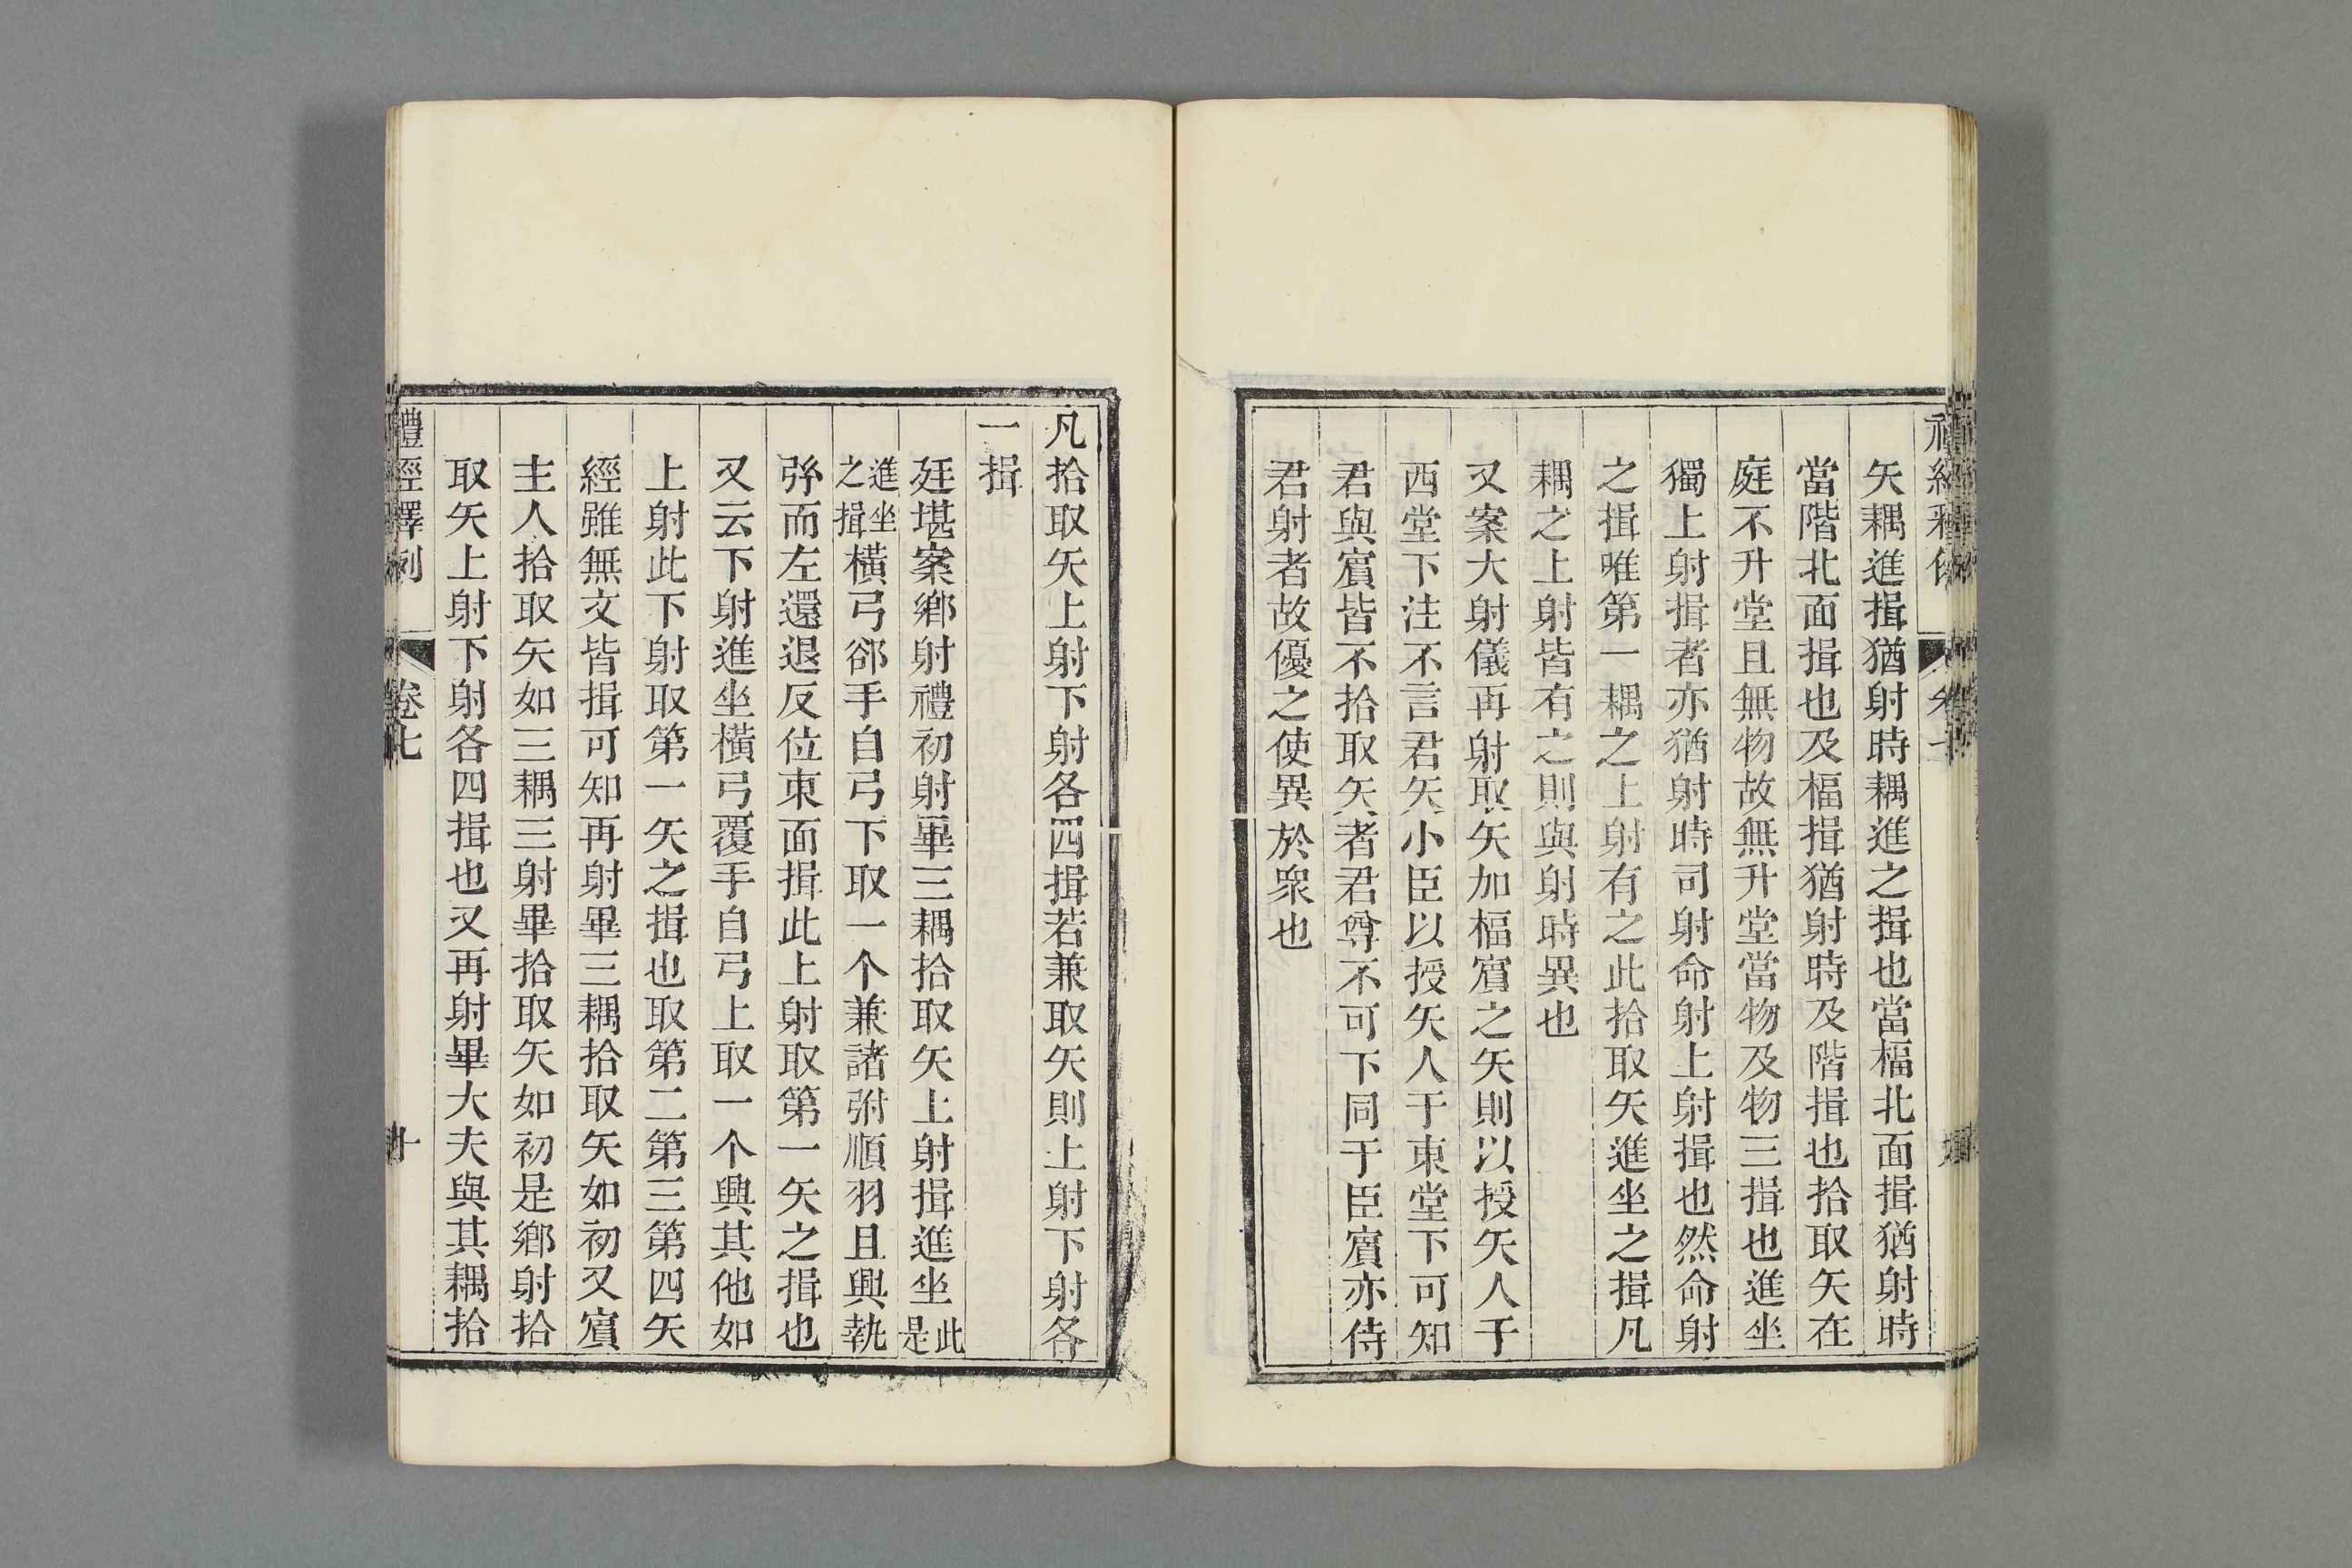 矢耦進揖猶射時耦進之揖也當楅北面揖猶射時
當階北面揖也及楅揖猶射時及階揖也拾取矢在
庭不升堂且無物故無升堂當物及物三揖也進坐
獨上射揖者亦猶射時司射命射上射揖也然命射
之揖唯第一耦之上射有之此拾取矢進坐之揖凡
耦之上射皆有之則與射時異也
又案大射儀再射取矢加楅賓之矢則以授矢人于
西堂下注不言君矢小臣以授矢人于東堂下可知
君與賓皆不拾取矢者君尊不可下同于臣賓亦侍
君射者故優之使異於衆也
凡拾取矢上射下射各四揖若兼取矢則上射下射各
一揖
廷堪案鄉射禮初射畢三耦拾取矢上射揖進坐此是
進坐之揖橫弓郤手自弓下取一个兼諸弣順羽且興執
弣而左還退反位東面揖此上射取第一矢之揖也
又云下射進坐橫弓覆手自弓上取一个興其他如
上射此下射取第一矢之揖也取第二第三第四矢
經雖無文皆揖可知再射畢三耦拾取矢如初又賓
主人拾取矢如三耦三射畢拾取矢如初是鄉射拾
取矢上射下射各四揖也又再射畢大夫與其耦拾
禮經釋例 卷七 十